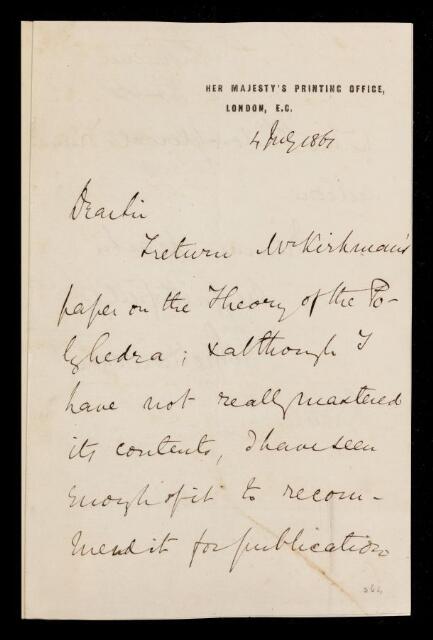 HER MAJESTY'S PRINTING OFFICE,
LONDON, E.C.
4 July 186
Dear Sir
I return Mr Kirkman's
paper on the Theory of the Po-
lyhedra; & although I
have not really mastered
its contents, I have seen
enough of it to recom-
mend it for publication